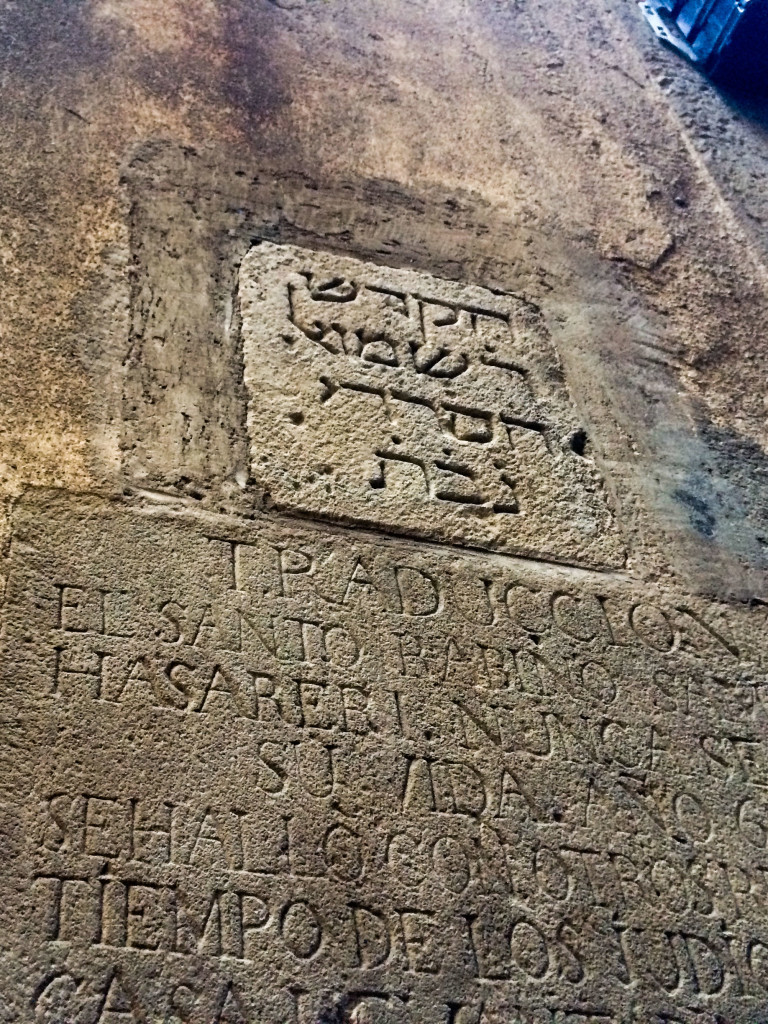 הקדש
ר שמואל
הסרדי
נבת
TRADUCCION
EL SANTO RABINO
HASARERI. NUNCA SE
SU VIDA. AÑO
SE HALLÒ CON OTROS
TIEMPO DE LOS
CASA